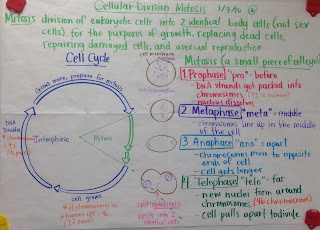 Cellular Division Mitosis
Mitosis division of eukaryotic cells into 2 identical body cells (not sex
cells) for the purposes of growth, replacing dead cells,
repairing damaged cells, and asexual reproduction
Cell Cycle
Grows more, prepare for mitosis
DNA
Doubles
Interphase
Mitosis
cell grows
# of chromosomes
a human cell = 46
(23 pairs)
cell membrane
splits into 2
identical cells
Mitosis (a small piece of cell cycle)
1 Prophase "pro" = before
- DNA strands get packed into
chromosomes
- nucleus dissolves
2 Metaphase "meta" = middle
- chromosomes line up in the middle
of the cell
3 Anaphase "ana" = apart
- Chromosomes move to opposite
ends of cell
- cell gets longer
4 Telophase "telo" = far
- new nuclei form around
chromosomes (46 chromosomes)
- cell pulls apart to divide